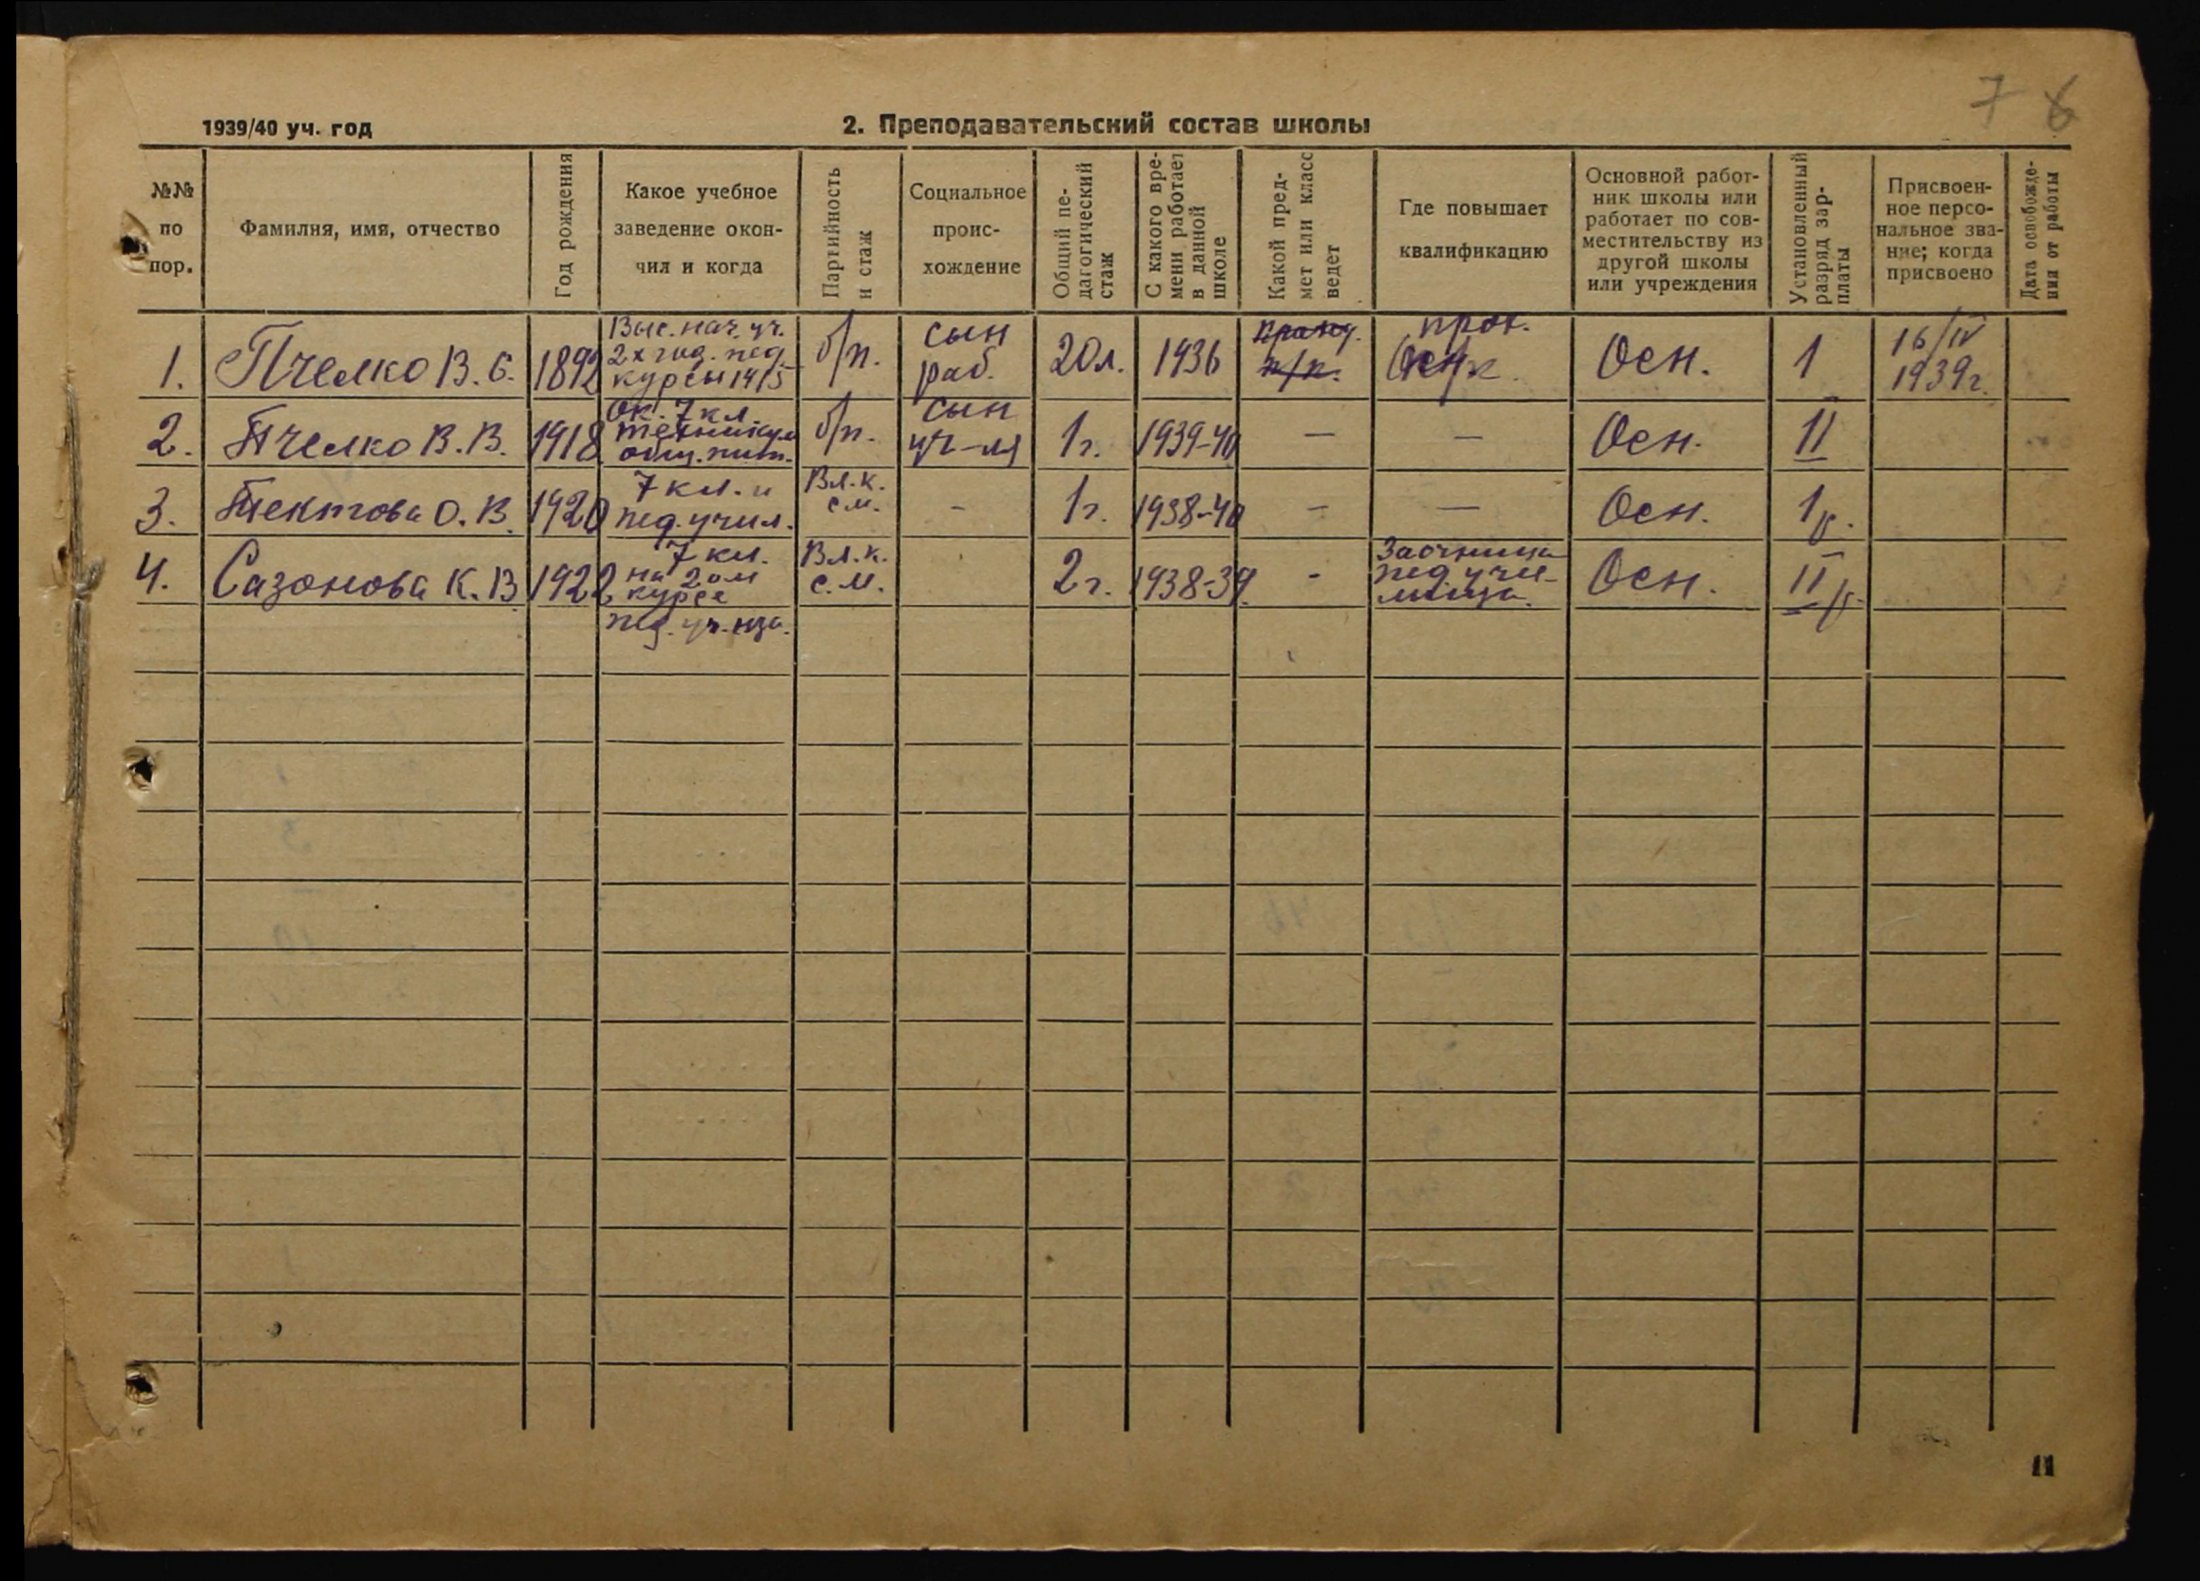 7 6
1939/40 уч. год
2. Преподавательский состав школы
№№ по пор.
Фамилия, имя, отчество
Год рождения
Какое учебное заведение окончил и когда
Партийность и стаж
Социальное происхождение
Общий педагогический стаж
С какого времени работает в данной школе
Какой предмет или класс ведет
Где повышает квалификацию
Основной работник школы или работает по совместительству из другой школы или учреждения
Установленный разряд зарплаты
Присвоенное персональное звание; когда присвоено
Дата освобождения от работы
1. Пчелко В. С. 1892 Выс. нач. уч. 2х год. пед. курсы 1915 б/п. сын раб. 20 л. 1936 Осн. 1 16/IV 1939 г.
2. Пчелко В. В. 1918 Ок. 7 кл. техникум общ. пит. б/п. сын уч-ля 1 г. 1939-40 — — Осн. II
3. Тектова О. В. 1920 7 кл. и пед. учил. Вл.к. с м. - 1 г. 1938-40 — — Осн. 1
4. Сазонова К. В 1922 7 кл. на 2ом курсе пед. уч-ща. Вл.к. с. м. 2 г. 1938-39. - Заочница пед. учи-лища. Осн. II
11